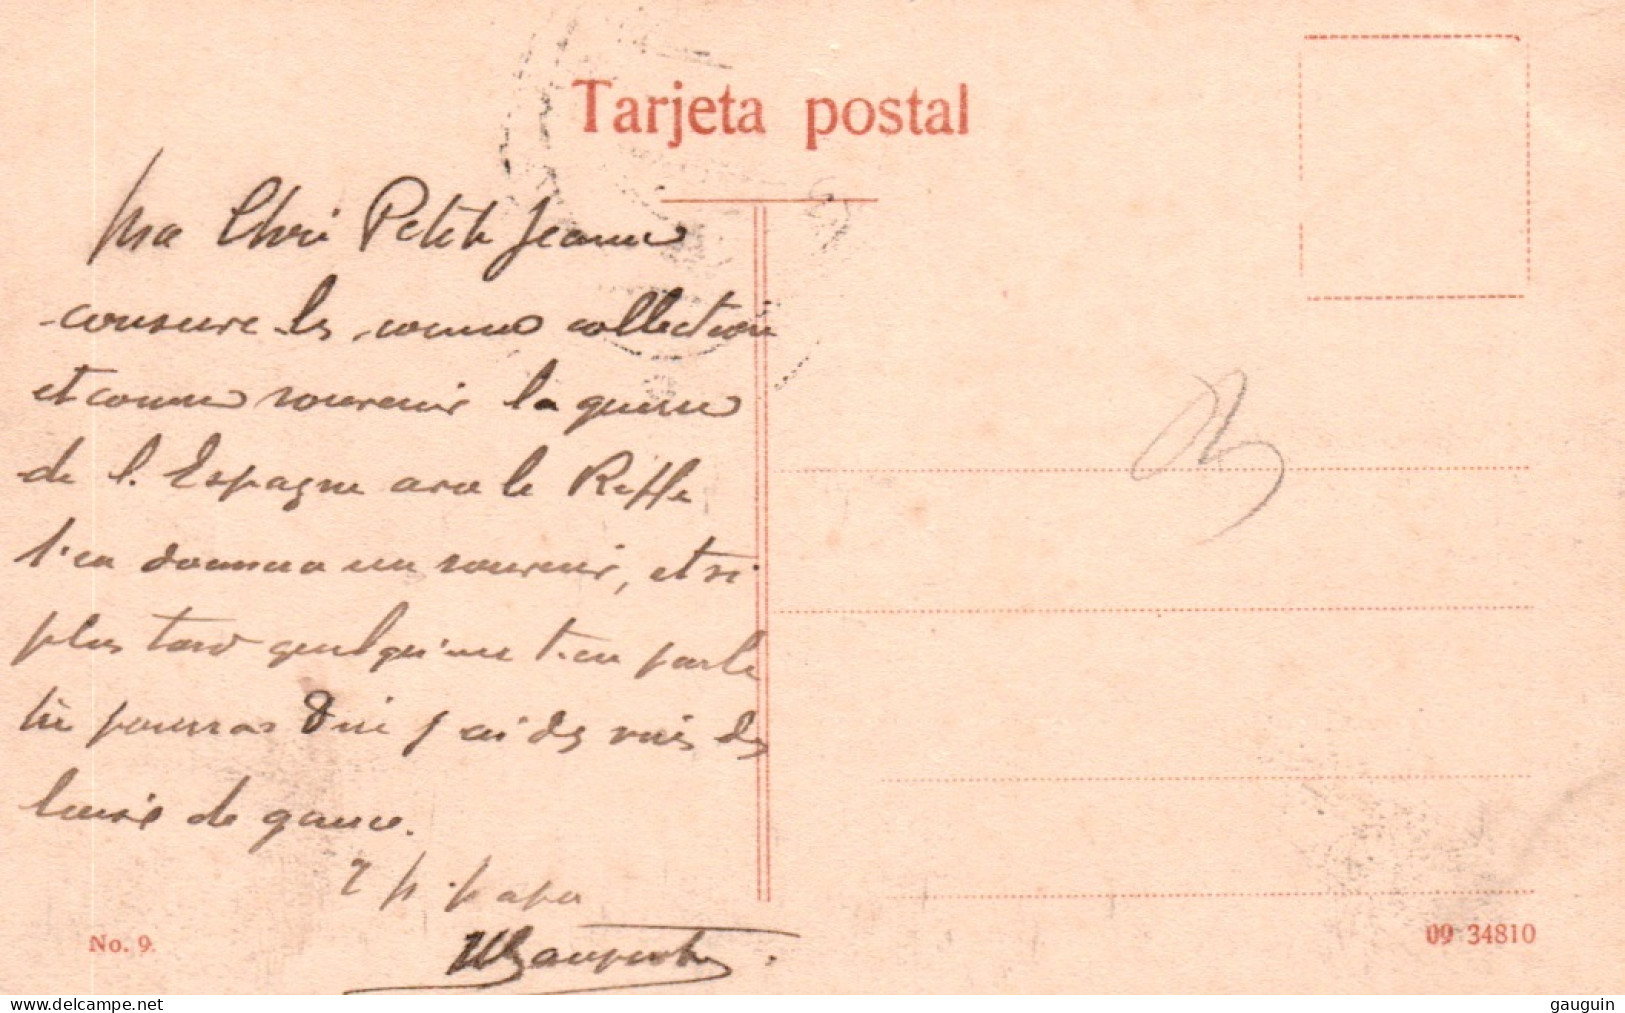 Tarjeta postal
Ma Chère Petite Jeanne
conserve les comme collection
et comme souvenir la guerre
de l'Espagne avec le Riffe
t'en donnera un souvenir, et si
plus tard quelqu'une t'en parle
tu pourras dire j'ai des vues des
de
papa
No. 9.
09 34810
www.delcampe.net
gauguin